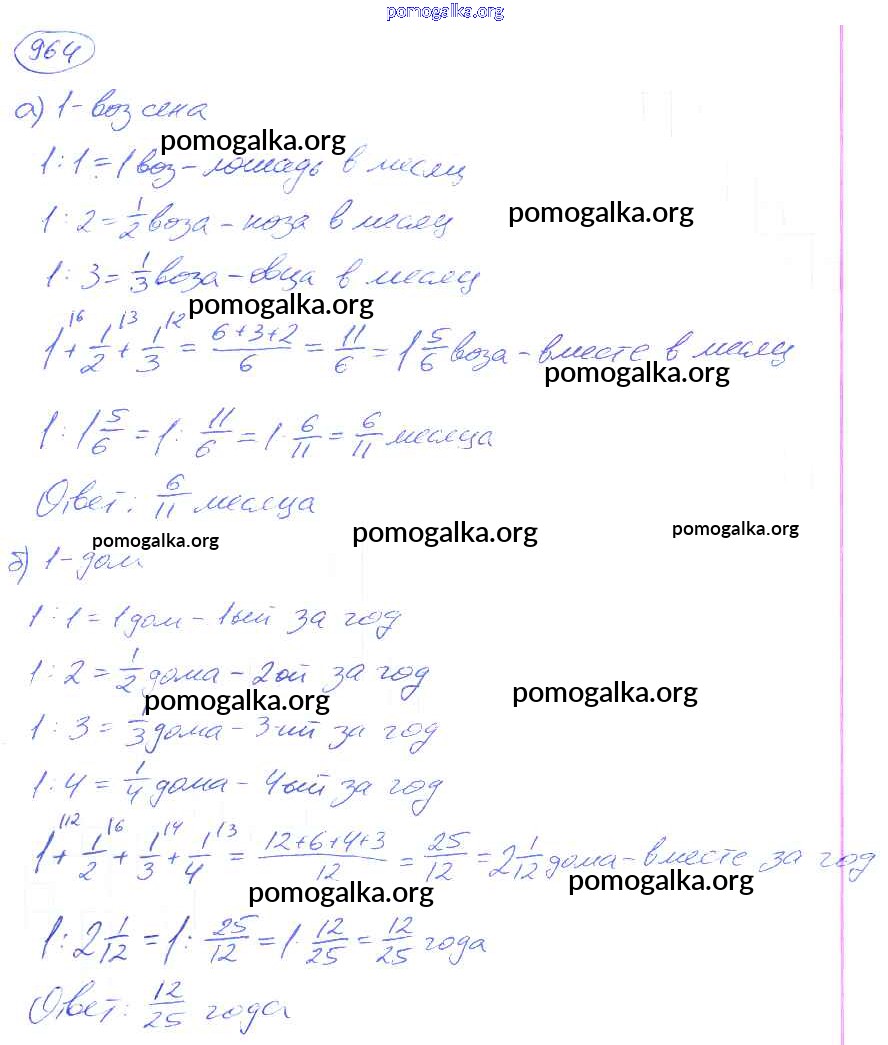 pomogalka.org
964
а) 1-воз сена
pomogalka.org
1:1=1воз-лошадь в месяц
1:2=1/2воза-коза в месяц
pomogalka.org
1:3=1/3воза-овца в месяц
pomogalka.org
1\6+1/2\3+1/3\2=(6+3+2)/6=11/6=1 5/6воза-вместе в месяц
pomogalka.org
1:1 5/6=1:11/6=1·6/11=6/11месяца
Ответ: 6/11месяца
pomogalka.org
pomogalka.org
pomogalka.org
б) 1-дом
1:1=1дом-1ый за год
1:2=1/2дома-2ой за год
pomogalka.org
pomogalka.org
1:3=1/3дома-3-ий за год
1:4=1/4дома-4ый за год
1\12+1/2\6+1/3\4+1/4\3=(12+6+4+3)/12=25/12=2 1/12дома-вместе за год
pomogalka.org
pomogalka.org
1:2 1/12=1:25/12=1·12/25=12/25года
Ответ: 12/25 года